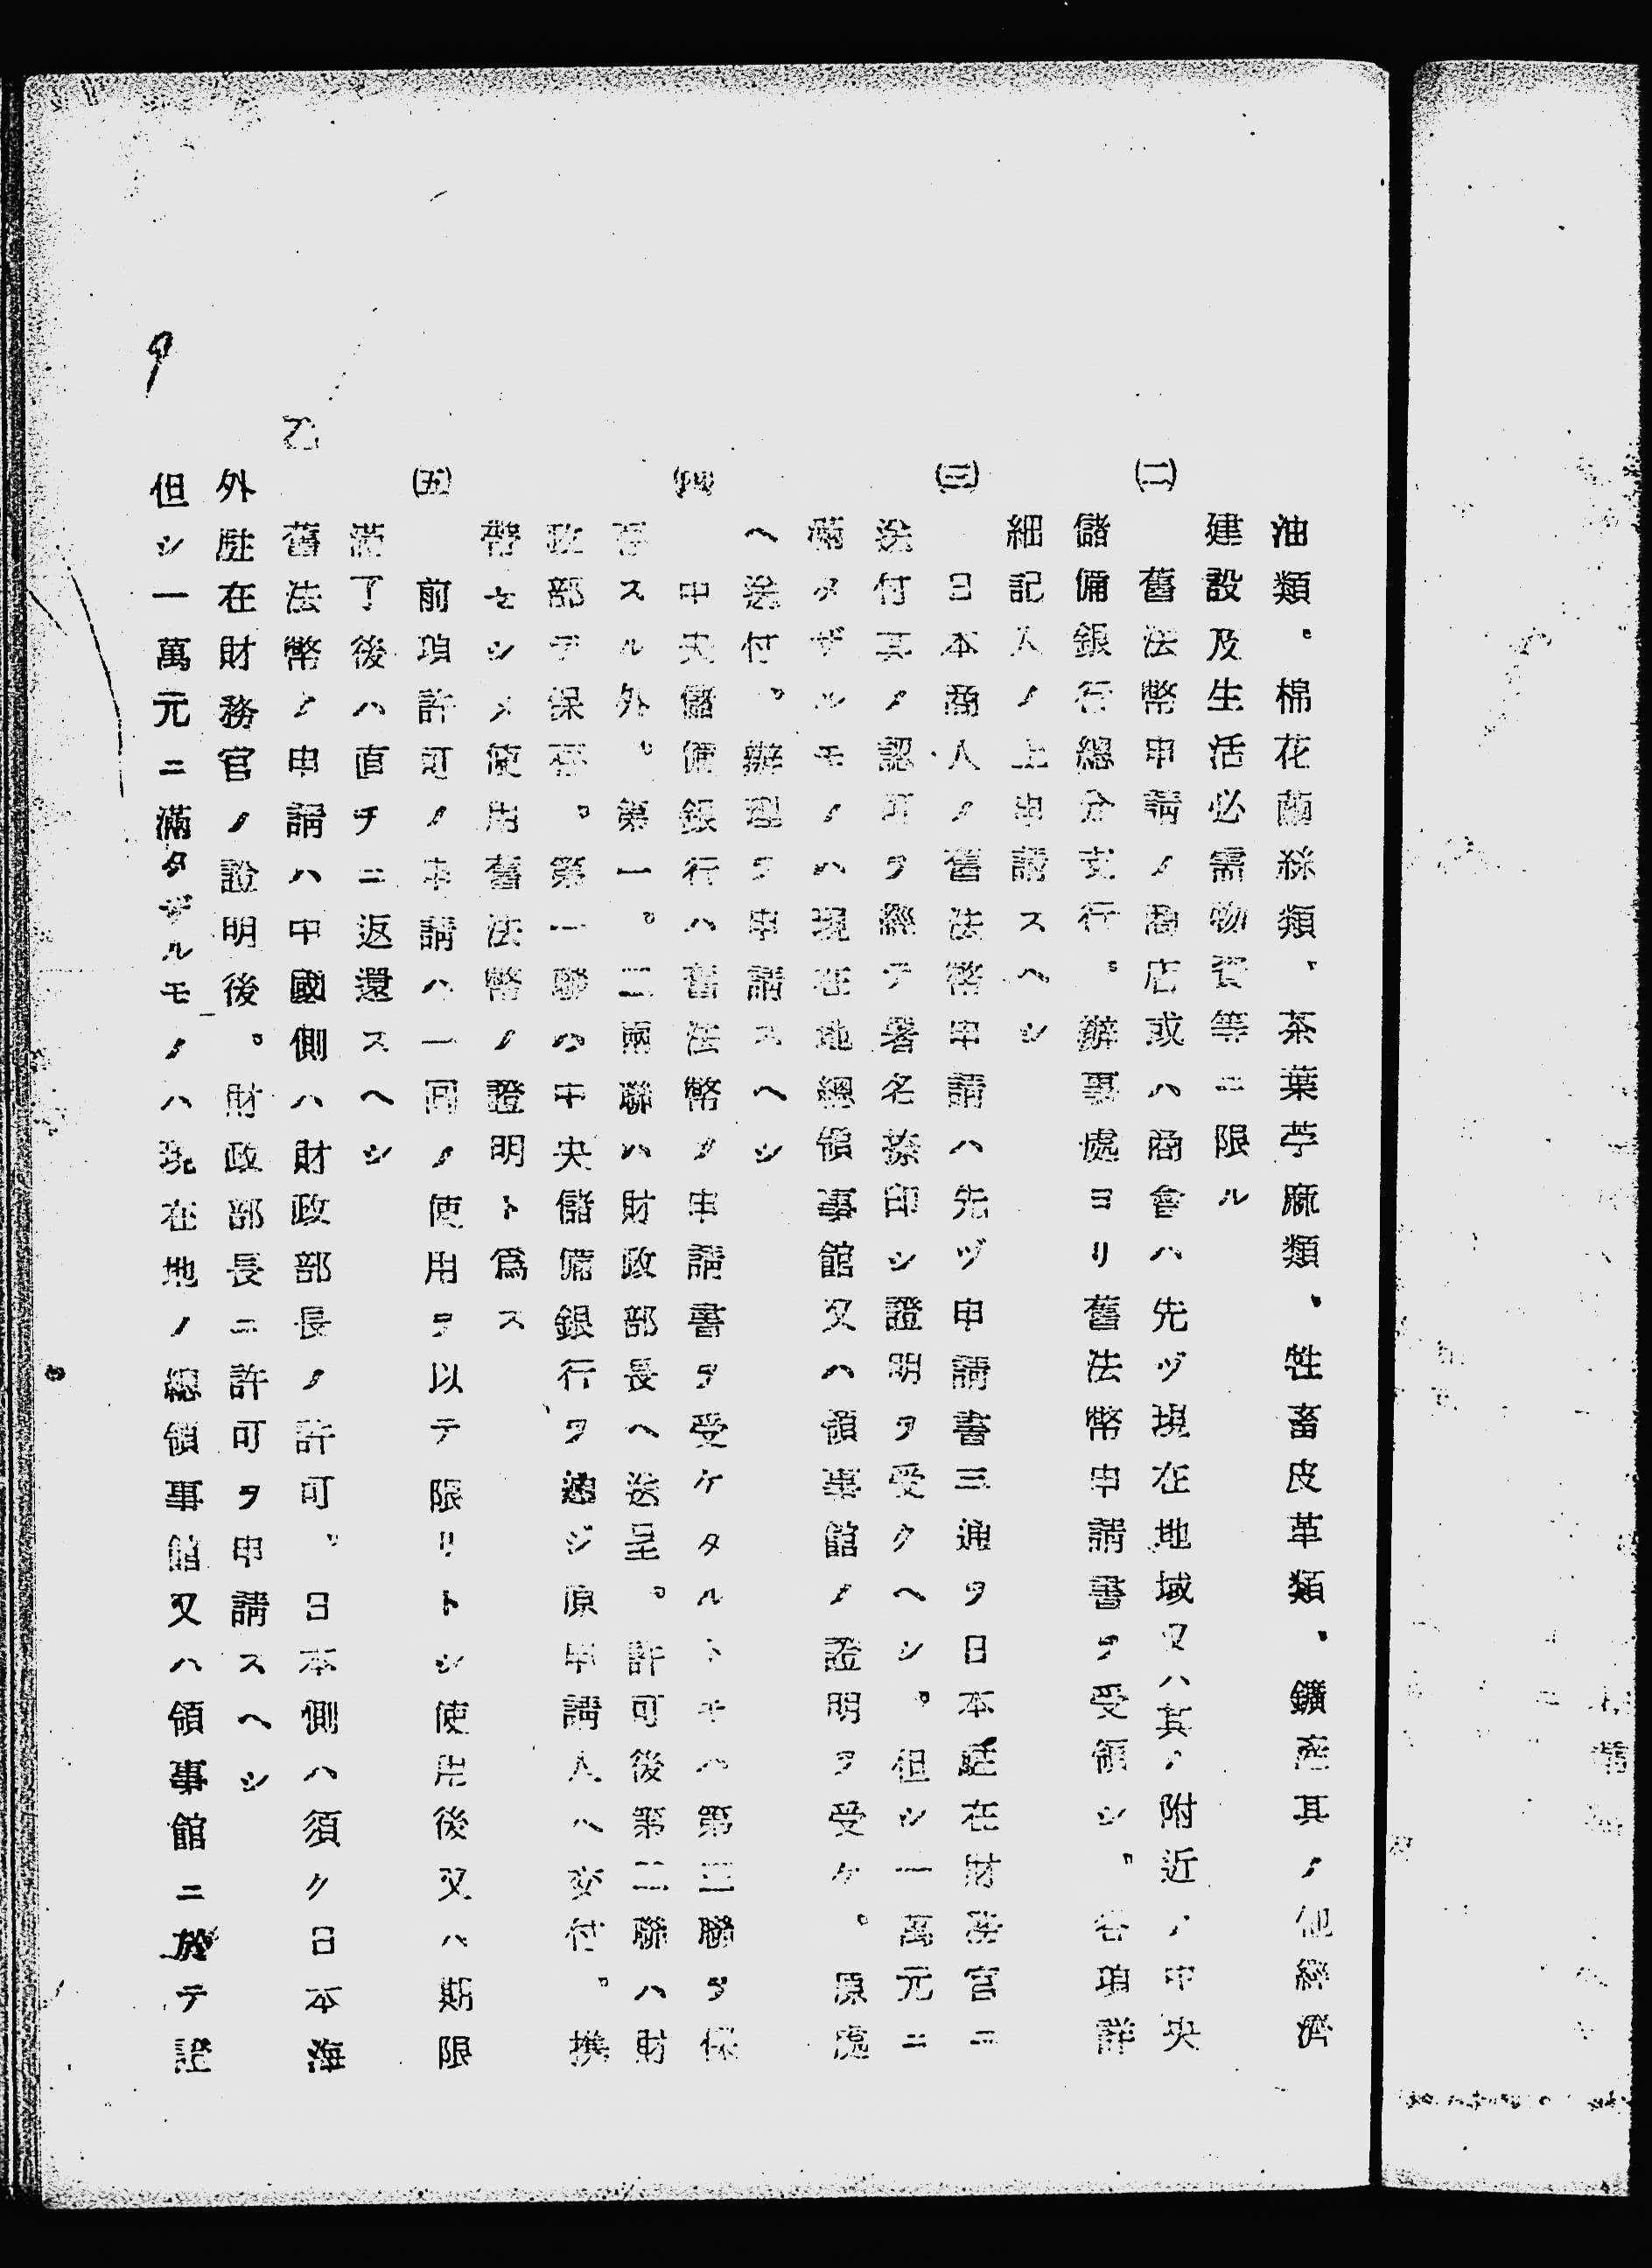 油類。棉花繭絲類、茶葉苧麻類、牲畜皮革類、鑛産其ノ他經濟
建設及生活必需物資等ニ限ル
(二) 舊法幣申請ノ商店或ハ商會ハ先ヅ現在地域又ハ其ノ附近ノ中央
儲備銀行總分支行。辦事處ヨリ舊法幣申請書ヲ受領シ。各項詳
細記入ノ上申請スヘシ
(三) 日本商人ノ舊法幣申請ハ先ヅ申請書三通ヲ日本駐在財務官ニ
送付其ノ認可ヲ經テ署名捺印シ證明ヲ受クヘシ。但シ一萬元ニ
滿タザルモノハ現在地總領事館又ハ領事館ノ證明ヲ受ケ。原處
ヘ送付。辦理ヲ申請スヘシ
(四) 中央儲備銀行ハ舊法幣ノ申請書ヲ受ケタルトキハ第三聯ヲ保
存スル外。第一。二兩聯ハ財政部長ヘ送呈。許可後第二聯ハ財
政部デ保存。第一聯ハ中央儲備銀行ヲ通ジ原申請人ヘ交付。携
帶セシメ使用舊法幣ノ證明ト爲ス
(五) 前項許可ノ申請ハ一回ノ使用ヲ以テ限リトシ使用後又ハ期限
滿了後ハ直チニ返還スヘシ
乙 舊法幣ノ申請ハ中國側ハ財政部長ノ許可。日本側ハ須ク日本海
外駐在財務官ノ證明後。財政部長ニ許可ヲ申請スヘシ
但シ一萬元ニ滿タザルモノハ現在地ノ總領事館又ハ領事館ニ於テ證
9